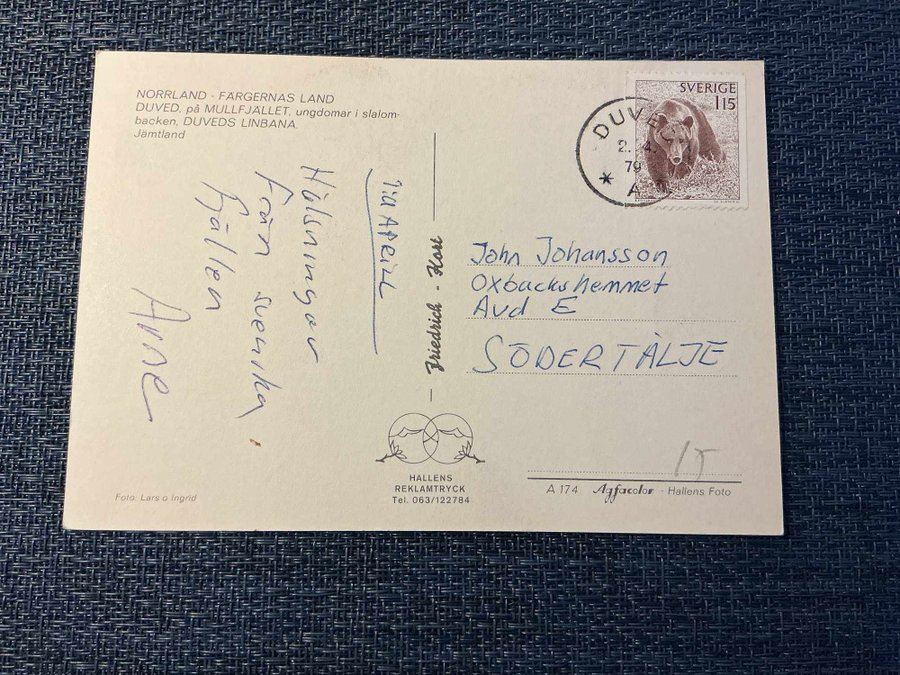 NORRLAND - FÄRGERNAS LAND
DUVED, på MULLFJÄLLET, ungdomar i slalom-
backen, DUVEDS LINBANA.
Jämtland
SVERIGE
115
DUVED
2. 4.
79
* A
Hälsningar
från svenska
fjällen
Arne
Friedrich - Kort
John Johansson
Oxbackshemmet
Avd E
SÖDERTÄLJE
HALLENS
REKLAMTRYCK
Tel. 063/122784
Foto: Lars o Ingrid
15
A 174 Agfacolor - Hallens Foto